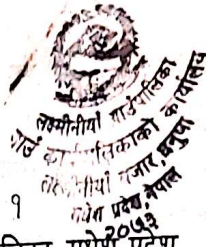 लक्ष्मीनीयाँ गाउँपालिका
गाउँ कार्यपालिकाको कार्यालय
लक्ष्मीनीयाँ बजार, धनुषा
मधेश प्रदेश, नेपाल
२०७३
१
मधेश प्रदेश